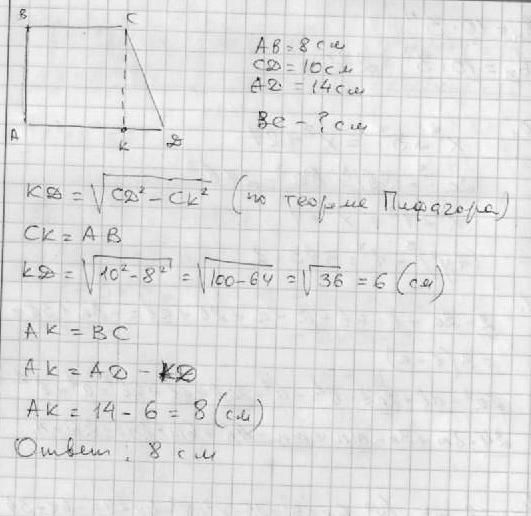 B C
A K D
AB = 8 см
CD = 10 см
AD = 14 см
BC - ? см
KD = √CD² - CK² (по теореме Пифагора)
CK = AB
KD = √10² - 8² = √100 - 64 = √36 = 6 (см)
AK = BC
AK = AD - KD
AK = 14 - 6 = 8 (см)
Ответ: 8 см